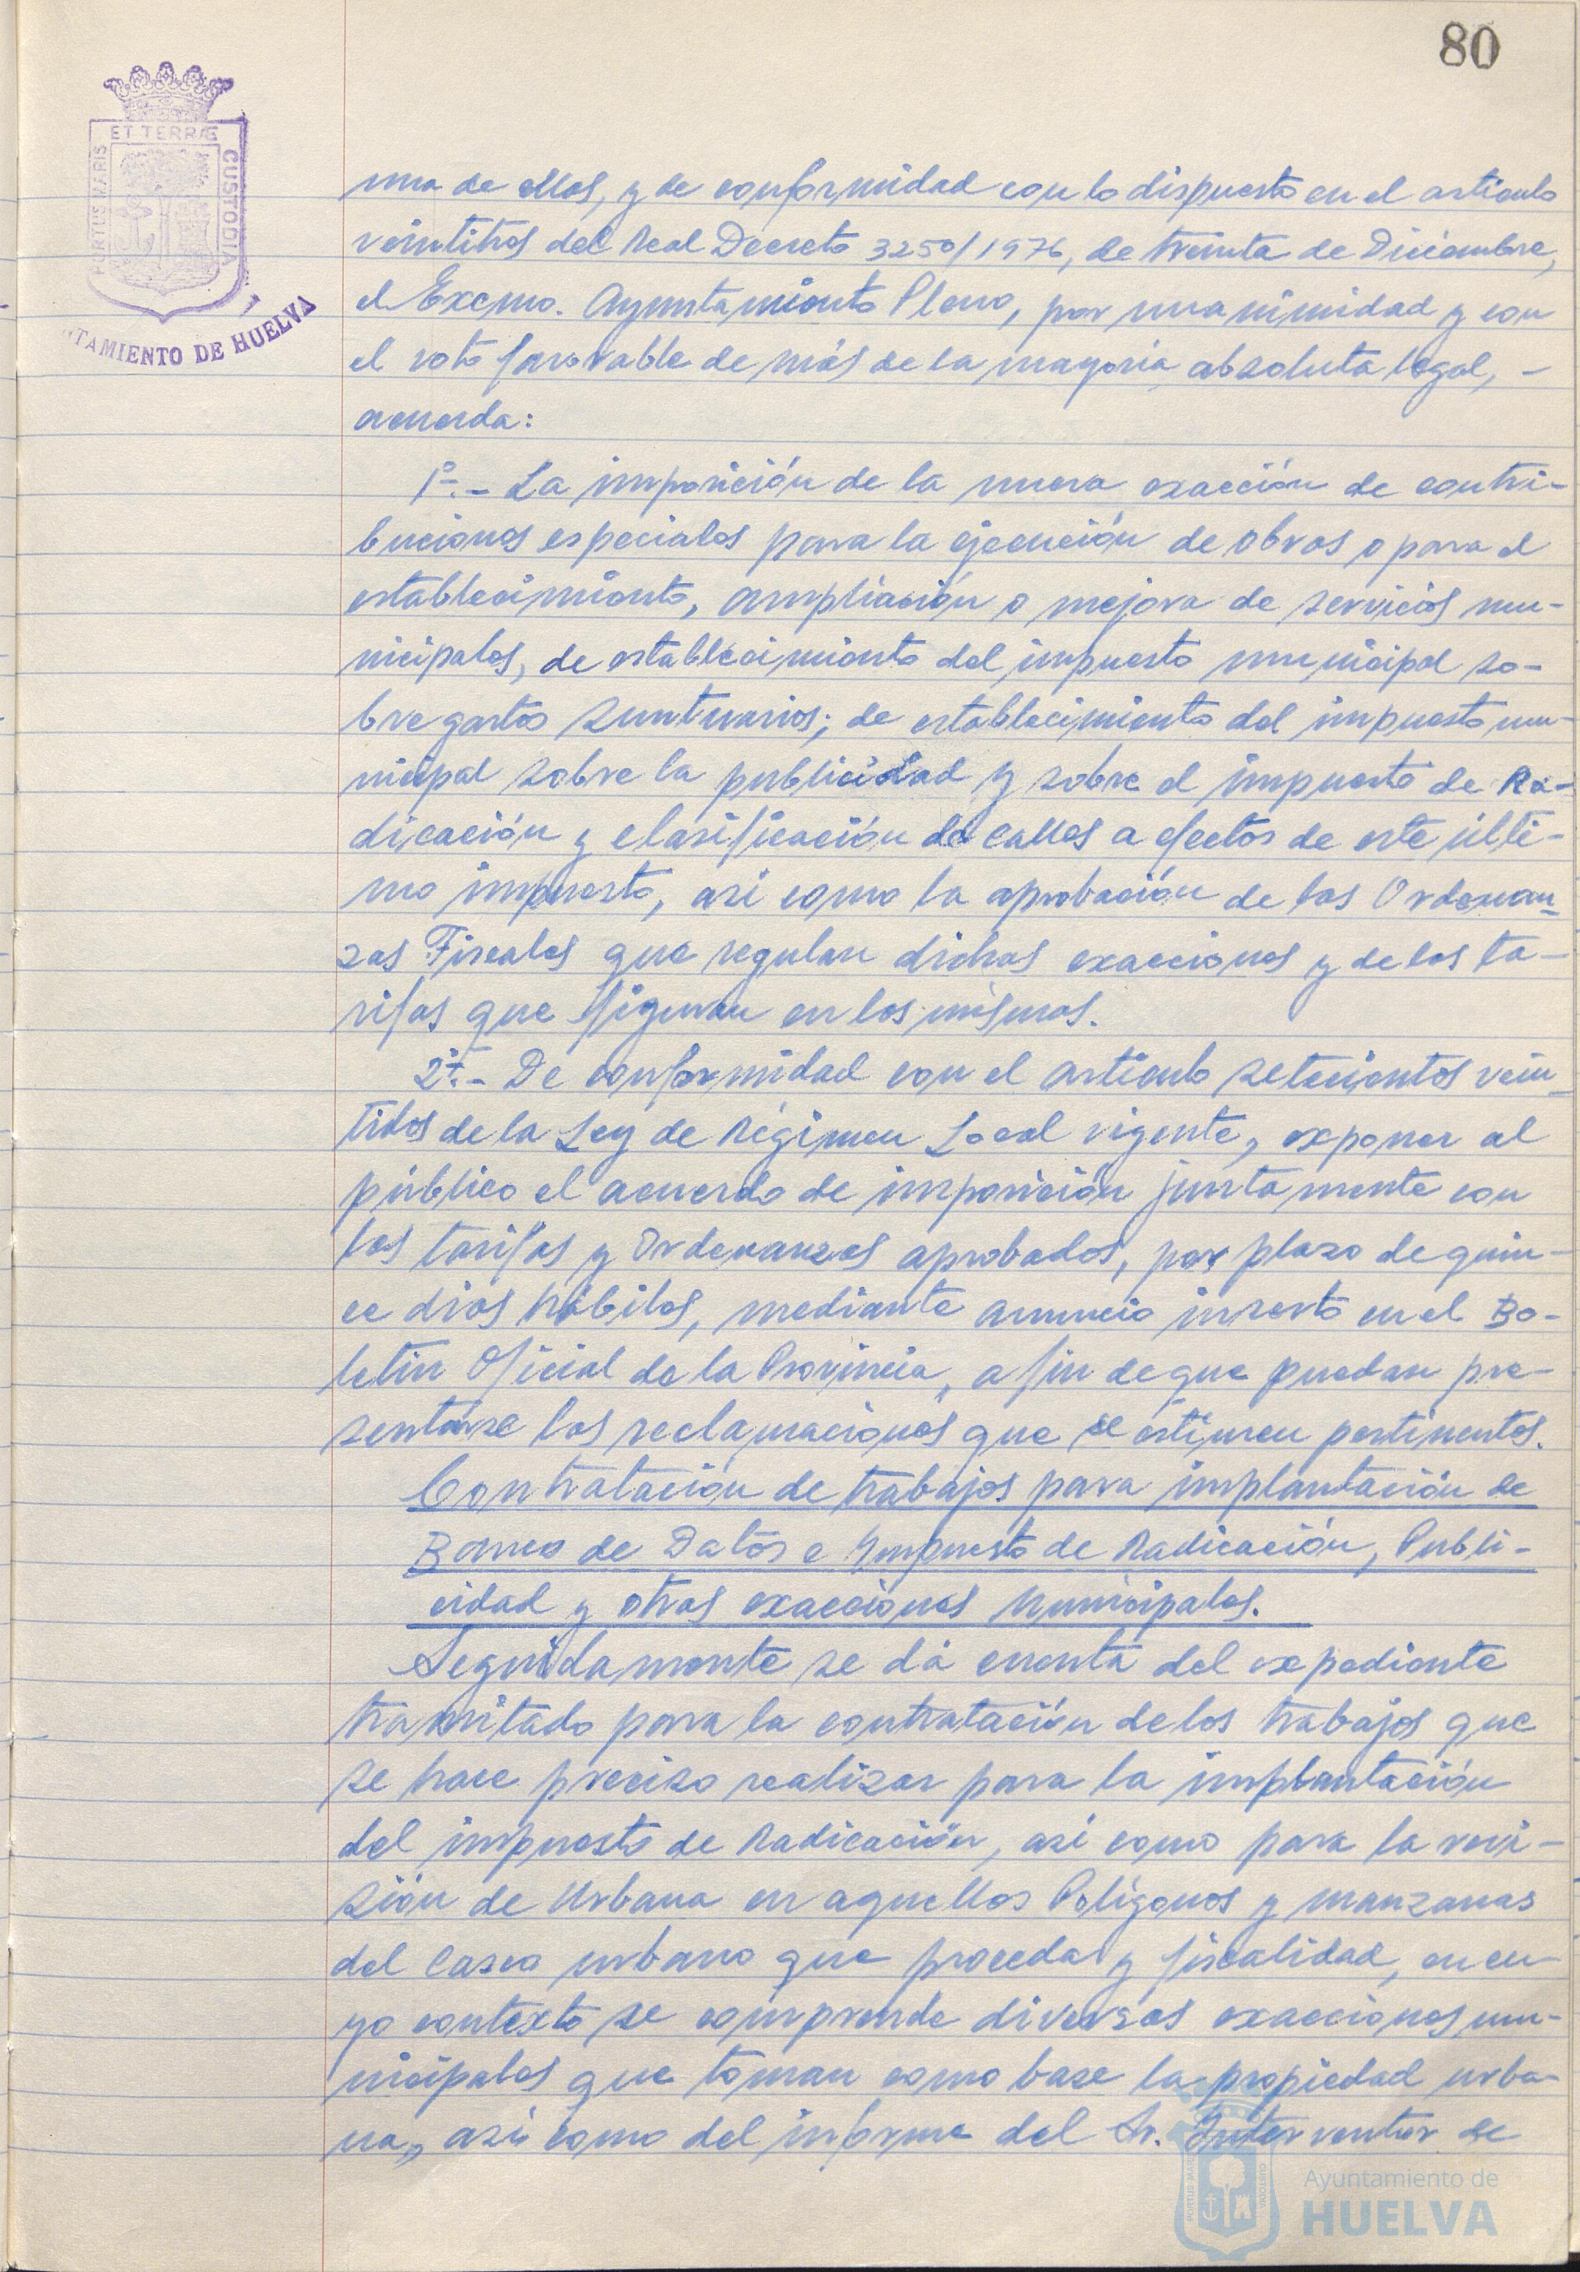 80
PORTUS MARIS ET TERRÆ CUSTODIA
TAMIENTO DE HUELVA
una de ellas, y de conformidad con lo dispuesto en el artículo
veintitres del Real Decreto 3250/1976, de treinta de Diciembre,
el Excmo. Ayuntamiento Pleno, por unanimidad y con
el voto favorable de más de la mayoría absoluta legal, -
acuerda:
1º.- La imposición de la nueva exacción de contri-
buciones especiales para la ejecución de obras o para el
establecimiento, ampliación o mejora de servicios mu-
nicipales, de establecimiento del impuesto municipal so-
bre gastos suntuarios; de establecimiento del impuesto mu-
nicipal sobre la publicidad y sobre el impuesto de Ra-
dicación y clasificación de calles a efectos de este últi-
mo impuesto, así como la aprobación de las Ordenan-
zas Fiscales que regulan dichas exacciones y de las ta-
rifas que figuran en los mismas.
2º.- De conformidad con el artículo setecientos vein-
tidos de la Ley de Régimen Local vigente, exponer al
público el acuerdo de imposición juntamente con
las tarifas y Ordenanzas aprobadas, por plazo de quin-
ce dias hábiles, mediante anuncio inserto en el Bo-
letín Oficial de la Provincia, a fin de que puedan pre-
sentarse las reclamaciones que se estimen pertinentes.
Contratación de trabajos para implantación de
Banco de Datos e Impuesto de Radicación, Publi-
cidad y otras exacciones municipales.
Seguidamente se dá cuenta del expediente
tramitado para la contratación de los trabajos que
se hace preciso realizar para la implantación
del impuesto de Radicación, así como para la revi-
sión de Urbana en aquellos Polígonos y manzanas
del Casco urbano que proceda y fiscalidad, en cu-
yo contexto se comprende diversas exacciones mu-
nicipales que toman como base la propiedad urba-
na, así como del informe del Sr. Interventor de
Ayuntamiento de
HUELVA